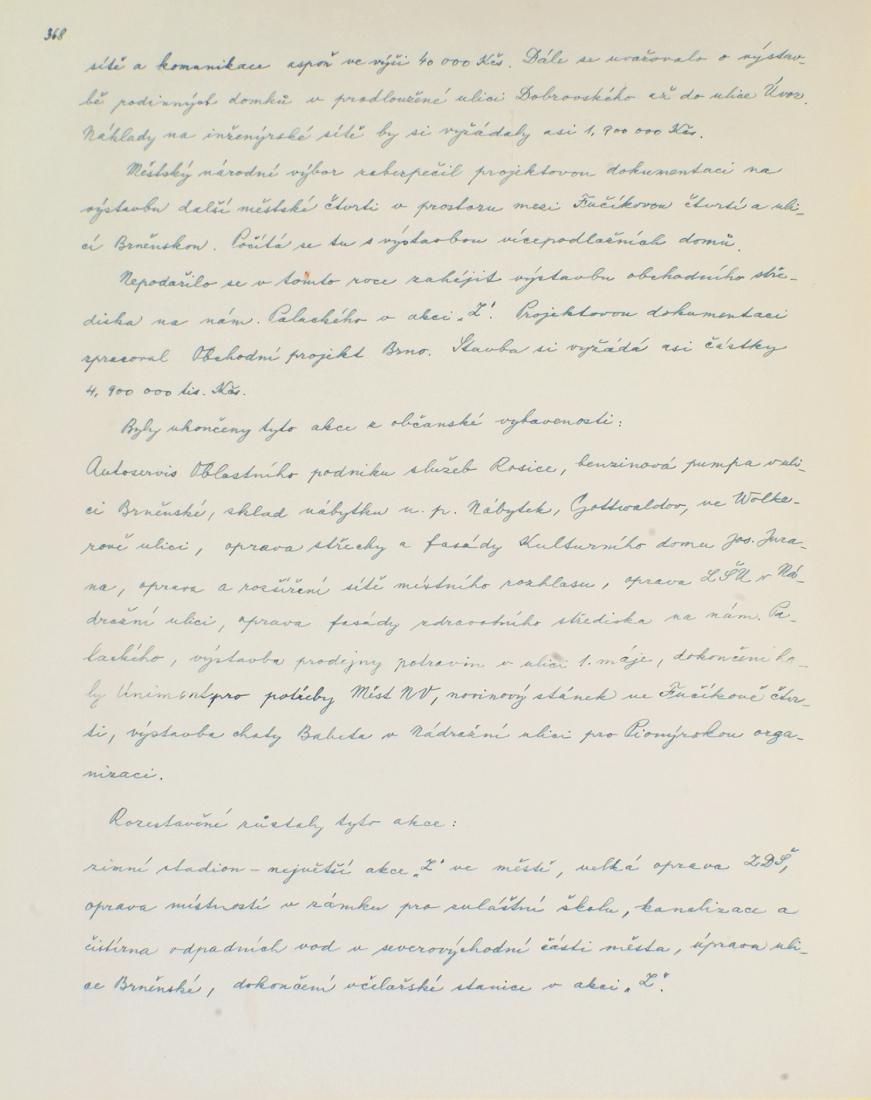 368
sítě a komunikace aspoň ve výši 40 000 Kčs. Dále se uvažovalo o výstav-
bě rodinných domků v prodloužené ulici Dobrovského až do ulice Úvoz.
Náklady na inženýrské sítě by si vyžádaly asi 1,900 000 Kčs.
Městský národní výbor zabezpečil projektovou dokumentaci na
výstavbu další městské čtvrti v prostoru mezi Fučíkovou čtvrtí a uli-
cí Brněnskou. Počítá se tu s výstavbou vícepodlažních domů.
Nepodařilo se v tomto roce zahájit výstavbu obchodního stře-
diska na nám. Palackého v akci „Z". Projektovou dokumentaci
zpracoval Obchodní projekt Brno. Stavba si vyžádá asi částky
4,900 000 tis. Kčs.
Byly ukončeny tyto akce z občanské vybavenosti:
Autoservis Oblastního podniku služeb Rosice, benzinová pumpa v uli-
ci Brněnské, sklad nábytku n. p. Nábytek, Gottwaldov, ve Wolke-
rově ulici, oprava střechy a fasády Kulturního domu Jos. Jura-
na, oprava a rozšíření sítě místního rozhlasu, oprava LŠU v Ná-
dražní ulici, oprava fasády zdravotního střediska na nám. Pa-
lackého, výstavba prodejny potravin v ulici 1. máje, dokončení ha-
ly Unimont pro potřeby Měst NV, novinový stánek ve Fučíkově čtvr-
ti, výstavba chaty Babeta v Nádražní ulici pro Pionýrskou orga-
nizaci.
Rozestavěné zůstaly tyto akce:
zimní stadion – největší akce „Z" ve městě, velká oprava ZDŠ,
oprava místností v zámku pro zvláštní školu, kanalizace a
čistírna odpadních vod v severovýchodní části města, úprava uli-
ce Brněnské, dokončení včelařské stanice v akci „Z".